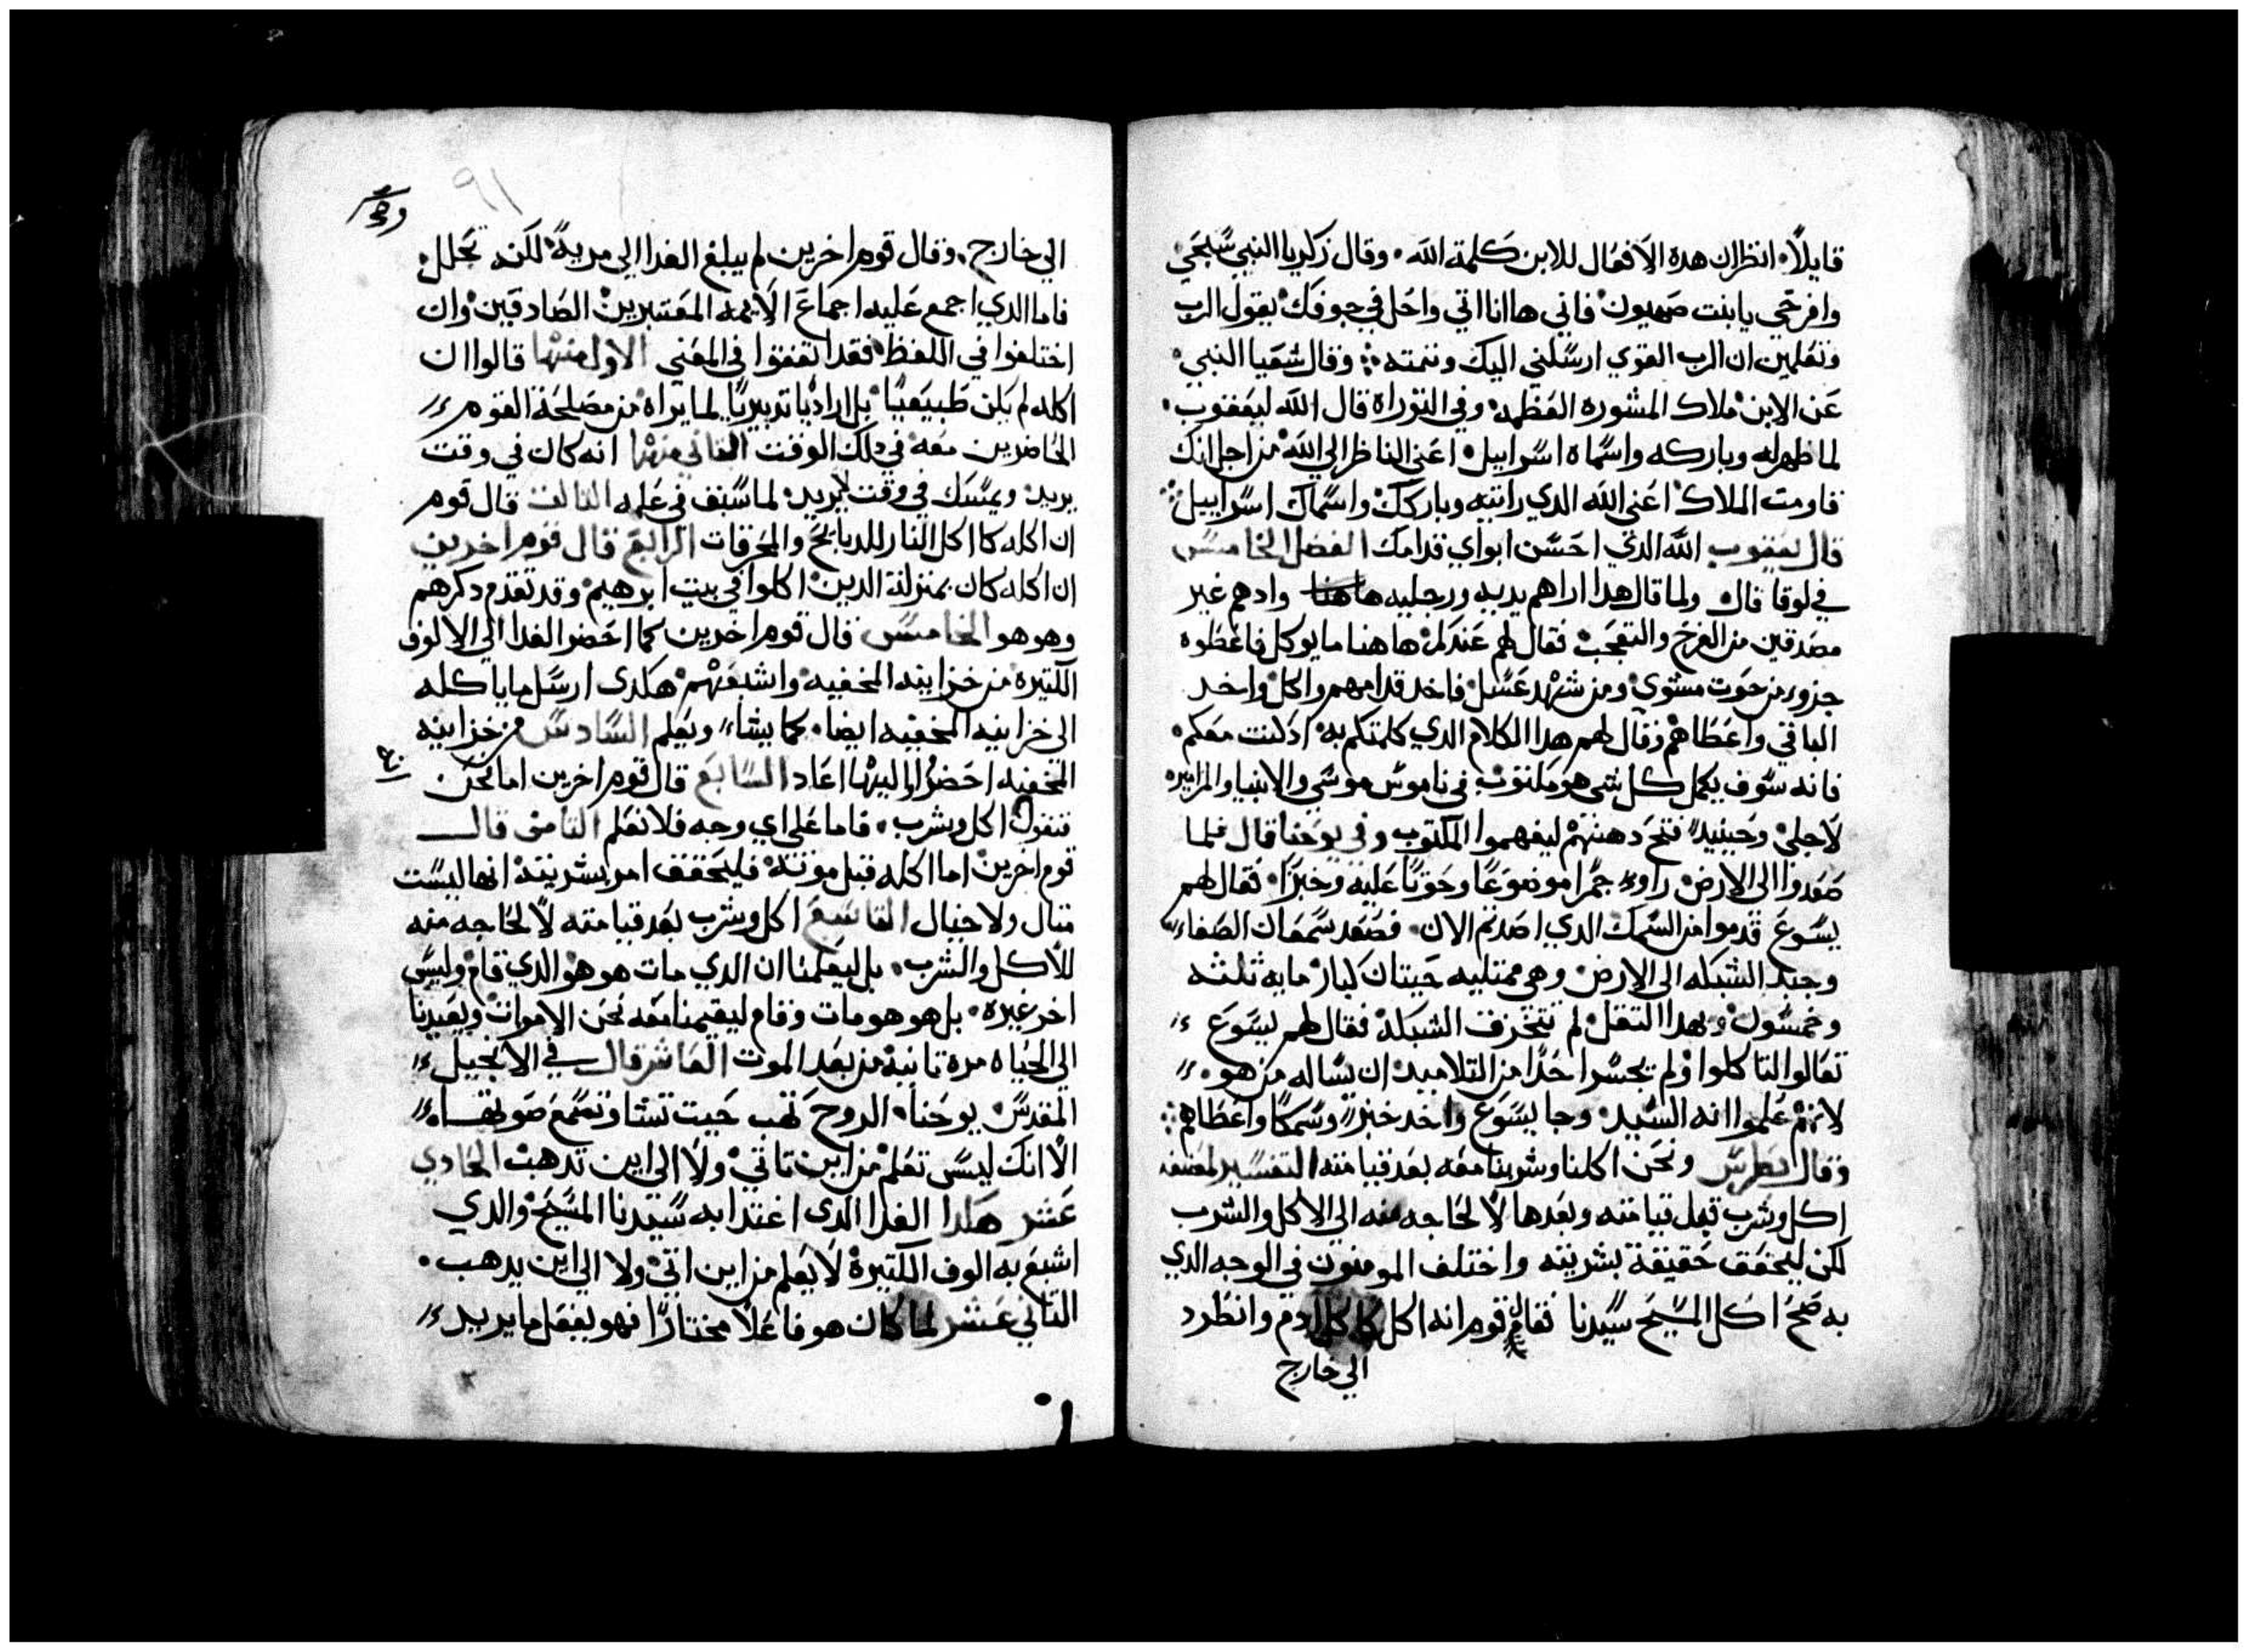 قايلاً انظر ان هده الافعال للابن كلمة الله وقال زكريا النبي سبحي
وافرحي يا بنت صهيون فاني ها انا اتي واحل في جوفك يقول الرب
وتعلمين ان الرب القوي ارسلني اليك وتتمته وقال شعيا النبي
عن الابن ملاك المشوره العظمه وفي التوراة قال الله ليعقوب
لما ظهر له وباركه واسماه اسراييل اعني الناظر الي الله من اجل انك
قاومت الملاك اعني الله الدي رايته وباركك واسماك اسراييل
قال يعقوب الله الدي احسن ابواي قدامك الفصل الخامس
في لوقا قال ولما قال هدا اراهم يديه ورجليه وادهم غير
مصدقين من الفرح والتعجب فقال لهم عندكم هاهنا ما يوكل فاعطوه
جزو من حوت مشوي ومن شهد عسل فاخد قدامهم واكل واخد
الباقي واعطاهم وقال لهم هدا الكلام الدي كلمتكم به ادكنت معكم
فانه سوف يكمل كل شي هو مكتوب في ناموس موسي والانبيا والمزامير
لاجلي وحينيد فتح دهنهم ليفهموا المكتوب وفي يوحنا قال فلما
صعدوا الي الارض راوا جمرا موضوعًا وحوتًا عليه وخبزًا فقال لهم
يسوع قدموا من السمك الدي اصدتم الان فصعد سمعان الصفاء
وجبد الشبكه الي الارض وهي ممتليه حيتان كبار مايه ثلثه
وخمسون وبهدا التقل لم تتخرق الشبكة فقال لهم يسوع
تعالوا لتاكلوا ولم يجسر احدًا من التلاميد ان يساله من هو
لانهم علموا انه السيد وجا يسوع واخد خبزًا وسمكًا واعطاهم
وقال بطرس ونحن اكلنا وشربنا معه بعد قيامته التفسير لمصنفه
اكل وشرب قبل قيامته وبعدها لا لحاجه منه الي الاكل والشرب
لكن ليحقق حقيقة بشريته واختلف المومنون في الوجه الدي
به صح اكل المسيح سيدنا فقال قوم انه اكل كاكل ادم وانطرد
الي خارج
٩١
الي خارج وقال قوم اخرين لم يبلغ الغدا الي مريه لكنه تحلل
فاما الدي اجمع عليه اجماع الايمه المعتبرين الصادقين وان
اختلفوا في اللفظ فقد اتفقوا في المعني الاول منها قالوا ان
اكله لم يكن طبيعيًا بل اراديًا تدبيريًا لما يراه من مصلحة القوم
الحاضرين معه في دلك الوقت التاني منها انه كان في وقت
يريد ويمسك في وقت لا يريد لما سبق في علمه التالت قال قوم
ان اكله كاكل النار للدبايح والمحرقات الرابع قال قوم اخرين
ان اكله كان بمنزلة الدين اكلوا في بيت ابرهيم وقد تقدم دكرهم
وهو هو الخامس قال قوم اخرين كما احضر الغدا الي الالوف
الكتيرة من خزاينه المخفيه واشبعهم هكدي ارسل ما ياكله
الي خزاينه المخفيه ايضا كما يشاء ويعلم السادس من خزاينه
المخفيه احضر واليها اعاد السابع قال قوم اخرين اما نحن
فنقول اكل وشرب فاما علي اي وجه فلا نعلم التامن قال
قوم اخرين اما اكله قبل موته فليحقق امر بشريته انها ليست
متال ولا خيال التاسع اكل وشرب بعد قيامته لا لحاجه منه
للاكل والشرب بل ليعلمنا ان الدي مات هو هو الدي قام وليس
اخر غيره بل هو هو مات وقام ليقيمنا معه نحن الاموات ويعيدنا
الي الحياه مره تانية من بعد الموت العاشر قال في الانجيل
المقدس يوحنا الروح تهب حيت تشا وتسمع صوتها
الا انك ليس تعلم من اين تاتي ولا الي اين تدهب الحادي
عشر هكدا الغدا الدي اغتدا به سيدنا المسيح والدي
اشبع به الوف الكتيرة لا يعلم من اين اتي ولا الي اين يدهب
التاني عشر لما كان هو فاعلاً مختارًا فهو يفعل ما يريد